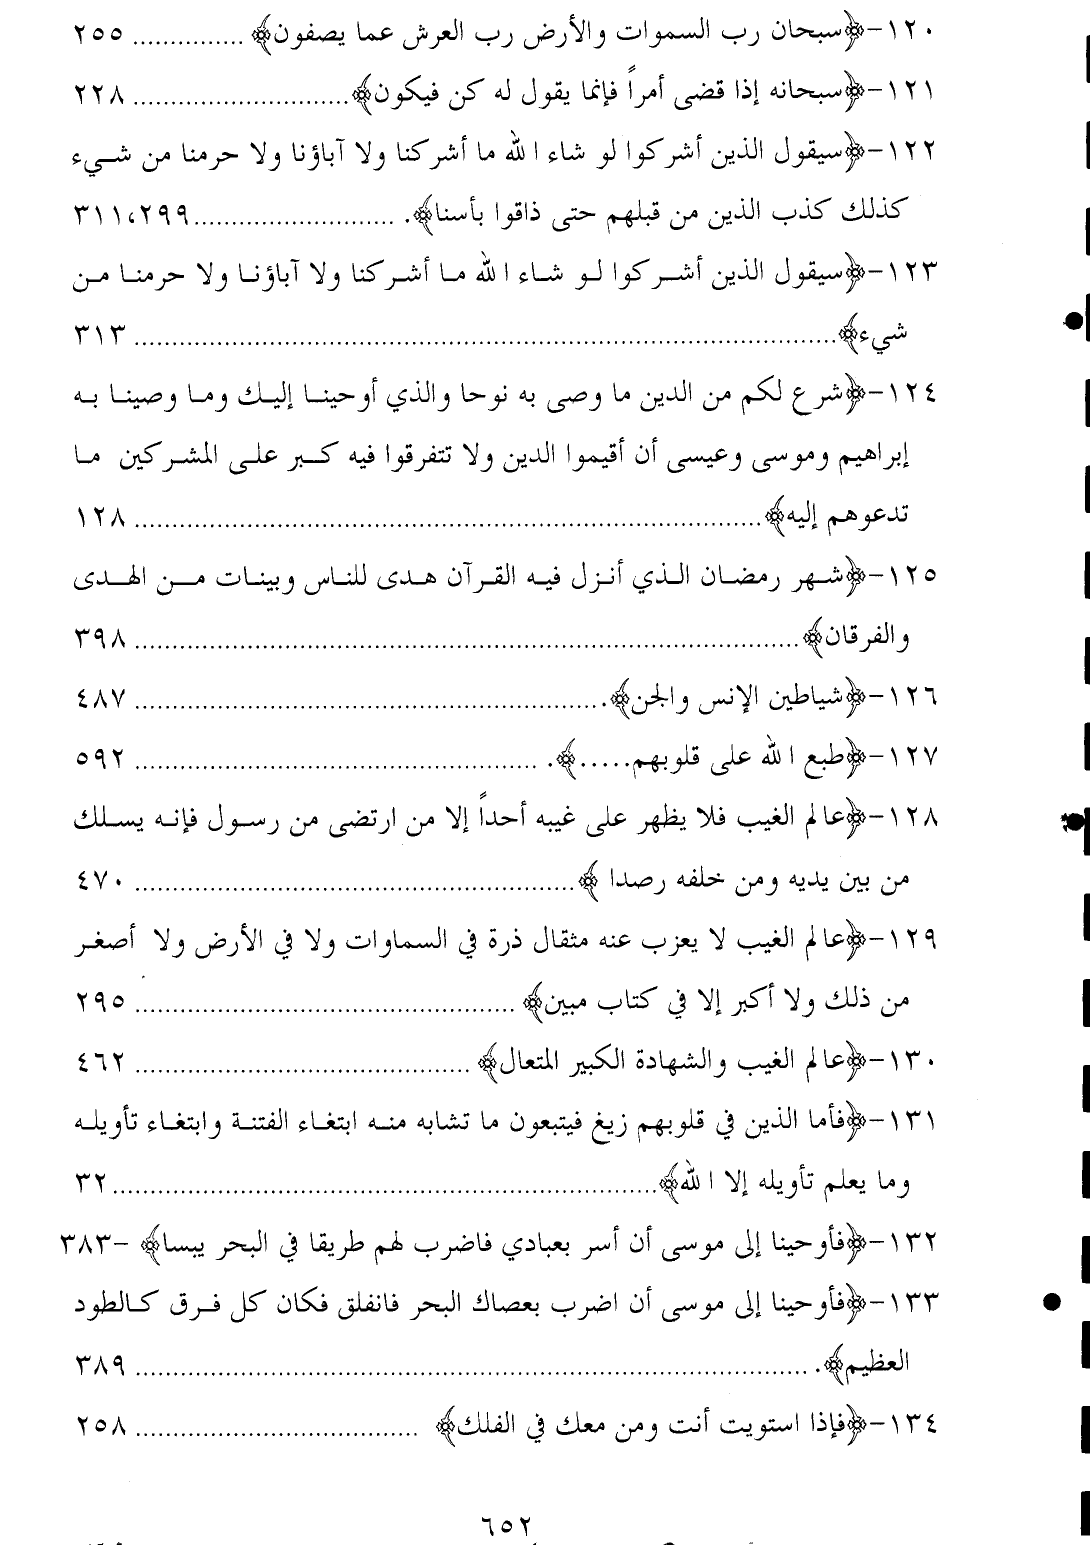 ١٢٠-﴿سبحان رب السموات والأرض رب العرش عما يصفون﴾ ............... ٢٥٥
١٢١-﴿سبحانه إذا قضى أمراً فإنما يقول له كن فيكون﴾............................ ٢٢٨
١٢٢-﴿سيقول الذين أشركوا لو شاء الله ما أشركنا ولا آباؤنا ولا حرمنا من شيء
كذلك كذب الذين من قبلهم حتى ذاقوا بأسنا﴾. ..........................٣١١،٢٩٩
١٢٣-﴿سيقول الذين أشركوا لو شاء الله ما أشركنا ولا آباؤنا ولا حرمنا من
شيء﴾........................................................................................... ٣١٣
١٢٤-﴿شرع لكم من الدين ما وصى به نوحا والذي أوحينا إليك وما وصينا به
إبراهيم وموسى وعيسى أن أقيموا الدين ولا تتفرقوا فيه كبر على المشركين ما
تدعوهم إليه﴾................................................................................. ١٢٨
١٢٥-﴿شهر رمضان الذي أنزل فيه القرآن هدى للناس وبينات من الهدى
والفرقان﴾...................................................................................... ٣٩٨
١٢٦-﴿شياطين الإنس والجن﴾............................................................. ٤٨٧
١٢٧-﴿طبع الله على قلوبهم.....﴾. .................................................... ٥٩٢
١٢٨-﴿عالم الغيب فلا يظهر على غيبه أحداً إلا من ارتضى من رسول فإنه يسلك
من بين يديه ومن خلفه رصدا ﴾......................................................... ٤٧٠
١٢٩-﴿عالم الغيب لا يعزب عنه مثقال ذرة في السماوات ولا في الأرض ولا أصغر
من ذلك ولا أكبر إلا في كتاب مبين﴾ ................................................. ٢٩٥
١٣٠-﴿عالم الغيب والشهادة الكبير المتعال﴾ ........................................... ٤٦٢
١٣١-﴿فأما الذين في قلوبهم زيغ فيتبعون ما تشابه منه ابتغاء الفتنة وابتغاء تأويله
وما يعلم تأويله إلا الله﴾...................................................................... ٣٢
١٣٢-﴿فأوحينا إلى موسى أن أسر بعبادي فاضرب لهم طريقا في البحر يبسا﴾ -٣٨٣
١٣٣-﴿فأوحينا إلى موسى أن اضرب بعصاك البحر فانفلق فكان كل فرق كالطود
العظيم﴾. ...................................................................................... ٣٨٩
١٣٤-﴿فإذا استويت أنت ومن معك في الفلك﴾ ..................................... ٢٥٨
٦٥٢